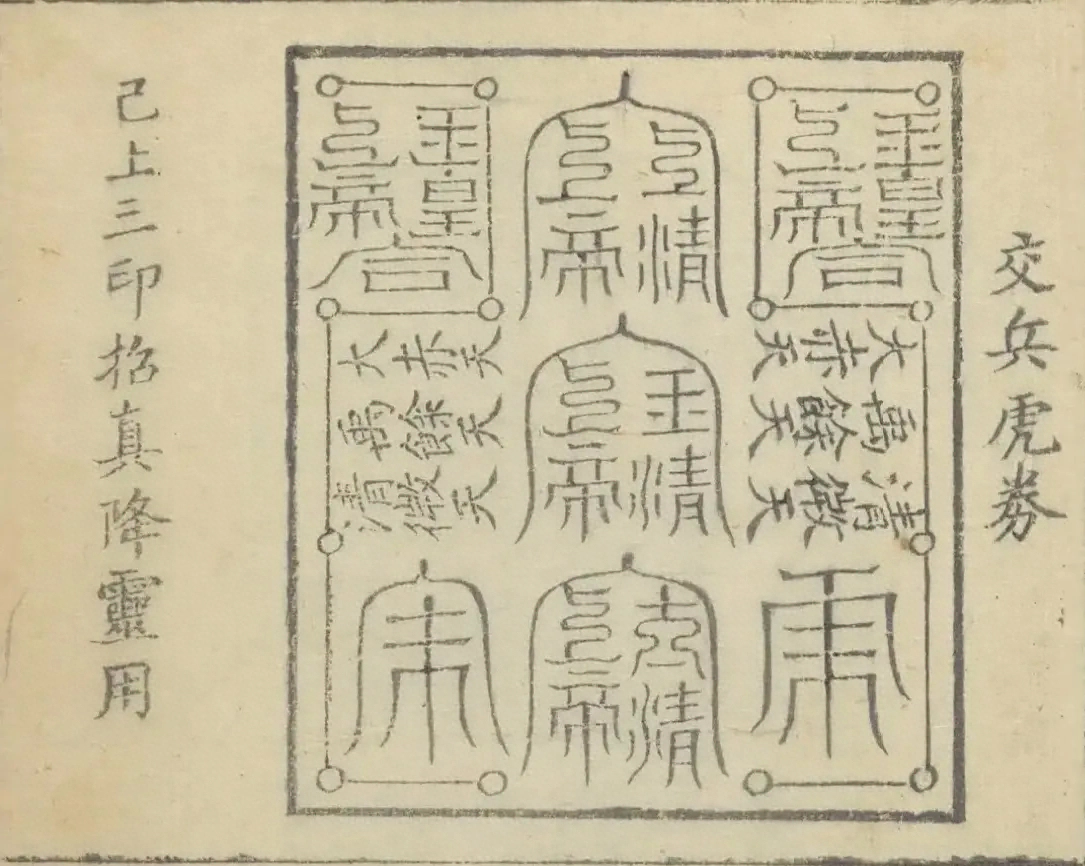 交兵虎劵
玉皇
上帝
大赤天
禹餘天
清微天
上清
上帝
玉清
上帝
太清
上帝
玉皇
上帝
大赤天
禹餘天
清微天
己上三印招真降靈用